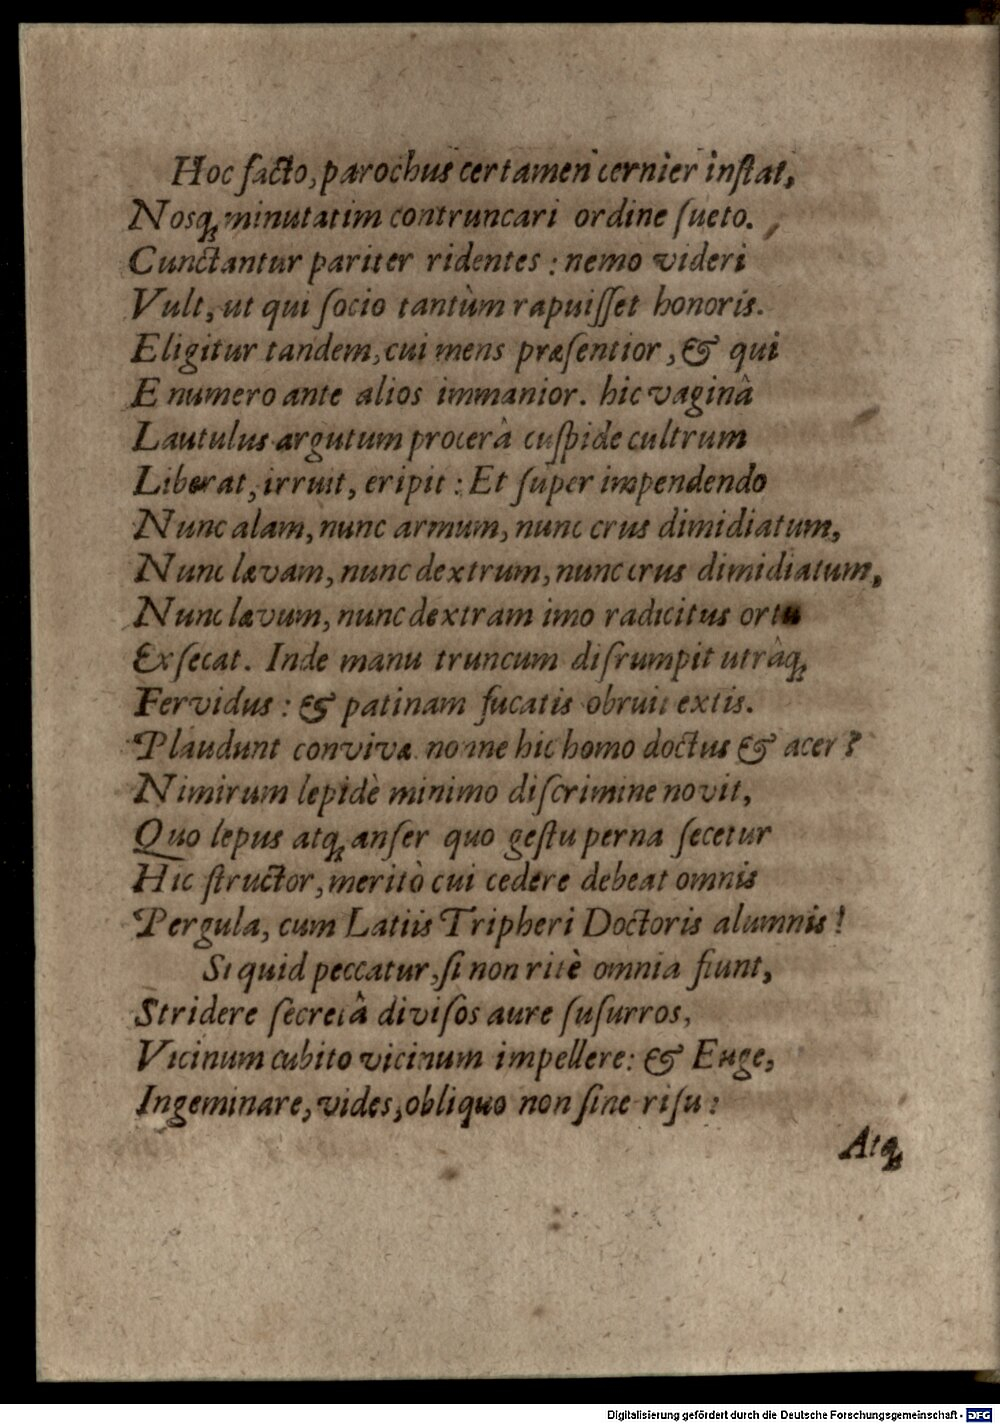 Hoc facto, parochus certamen cernier inſtat,
Nosq; minutatim contruncari ordine ſueto.
Cunctantur pariter ridentes : nemo videri
Vult, ut qui ſocio tantùm rapuiſſet honoris.
Eligitur tandem, cui mens præſentior, & qui
E numero ante alios immanior. hic vaginâ
Lautulus argutum procerâ cuſpide cultrum
Liberat, irruit, eripit : Et ſuper impendendo
Nunc alam, nunc armum, nunc crus dimidiatum,
Nunc lævam, nunc dextrum, nunc crus dimidiatum,
Nunc lævum, nunc dextram imo radicitus ortu
Exſecat. Inde manu truncum diſrumpit utrâq;
Fervidus : & patinam fucatis obruit extis.
Plaudunt convivæ. nonne hic homo doctus & acer?
Nimirum lepidè minimo diſcrimine novit,
Quo lepus atq; anſer quo geſtu perna ſecetur
Hic ſtructor, meritò cui cedere debeat omnis
Pergula, cum Latiis Tripheri Doctoris alumnis!
Si quid peccatur, ſi non ritè omnia fiunt,
Stridere ſecretâ diviſos aure ſuſurros,
Vicinum cubito vicinum impellere: & Euge,
Ingeminare, vides, obliquo non ſine riſu:
Atq;
Digitalisierung gefördert durch die Deutsche Forschungsgemeinschaft - DFG